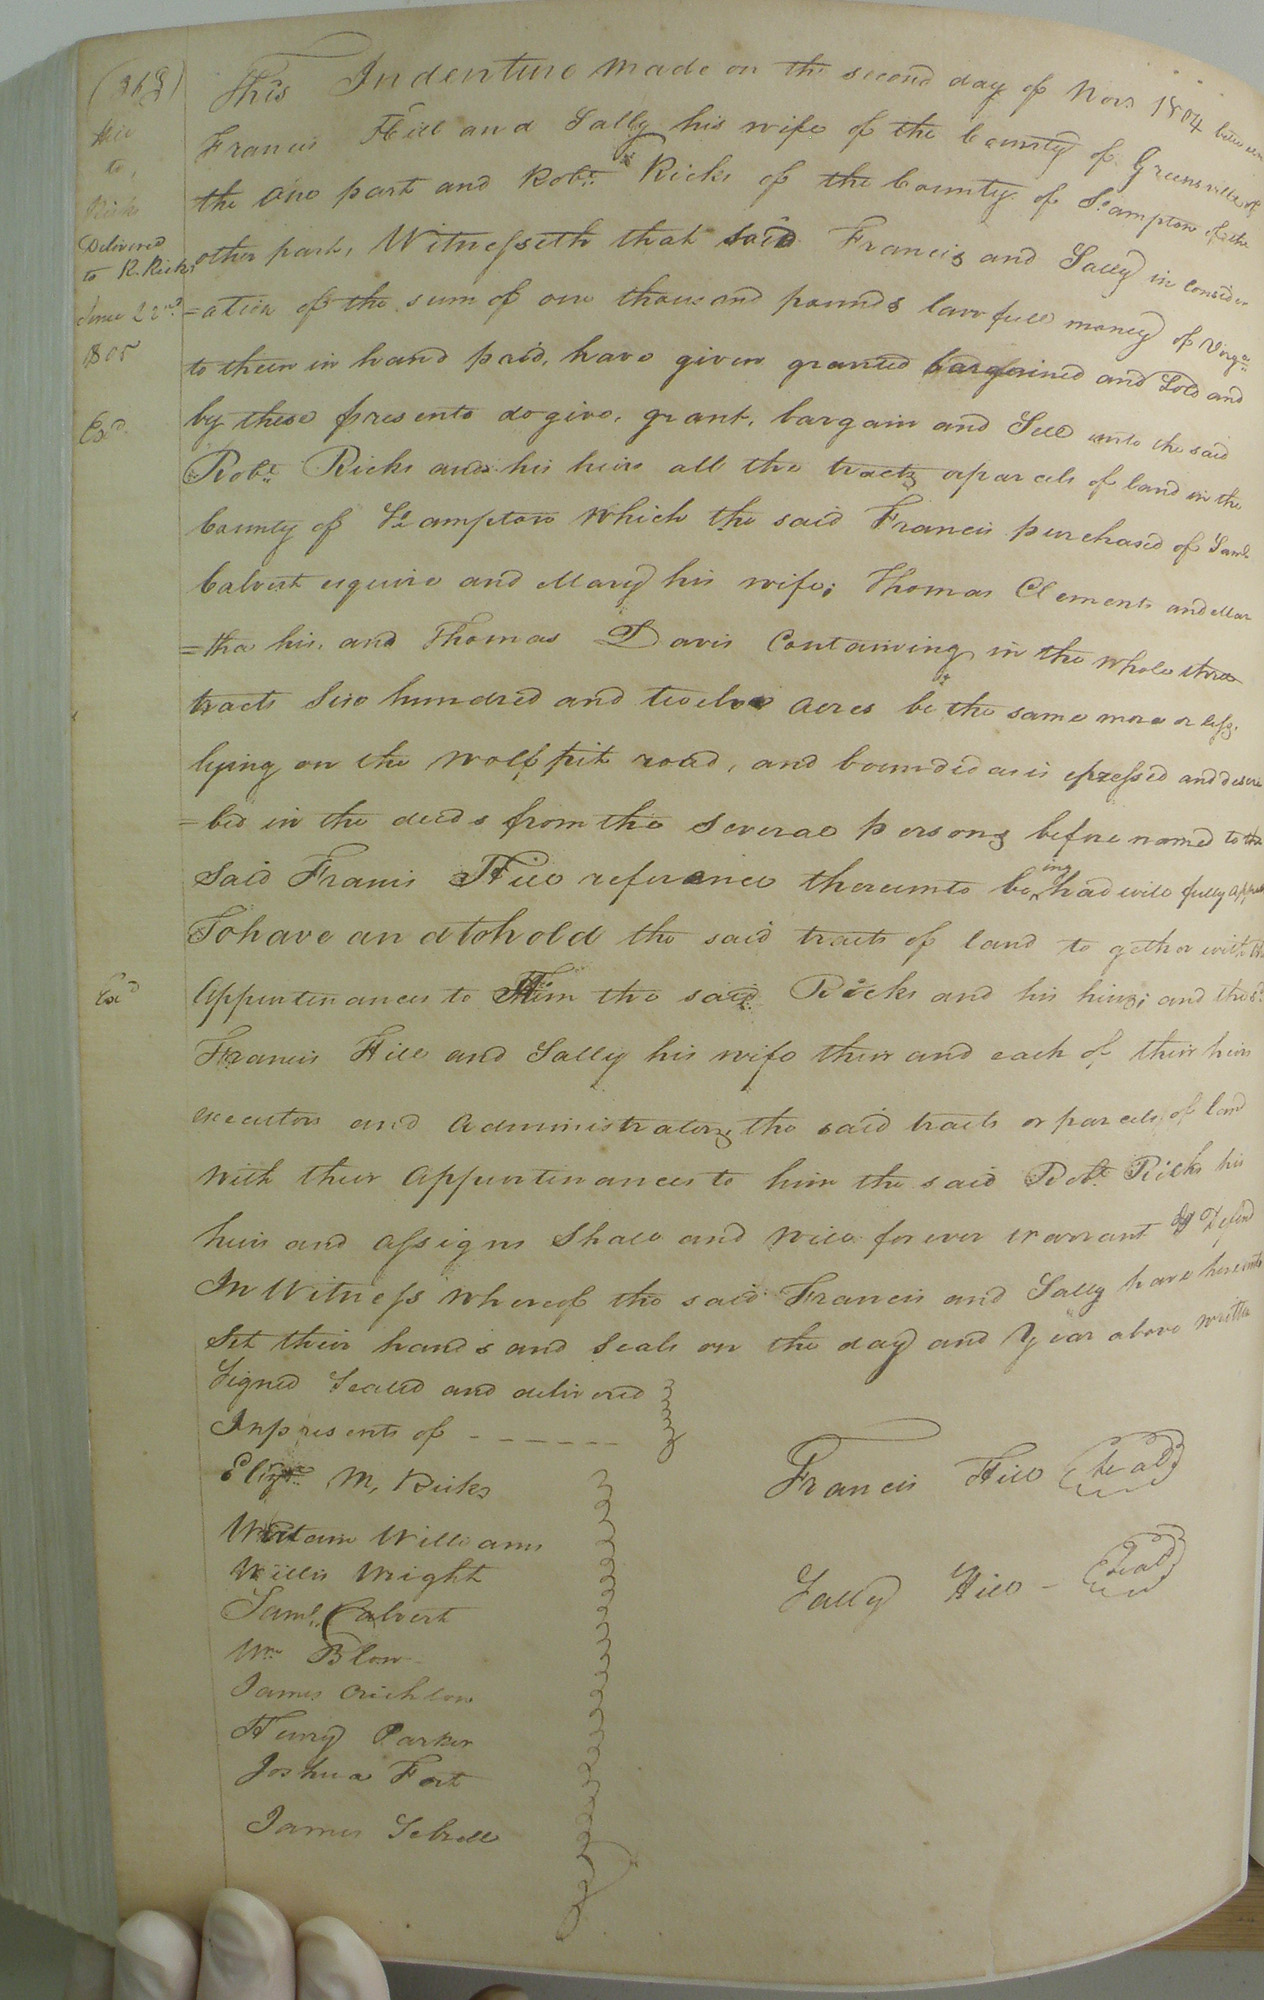 (363)
Hill
to,
Ricks
Delivered
to R. Ricks
June 22nd
1805
Exd.
Exd
This Indenture made on the second day of Novr 1804 between
Francis Hill and Sally his wife of the County of Greensville of
the one part and Robt. Ricks of the County of So.ampton of the
other part, Witnesseth that said Francis and Sally in consider
=ation of the sum of one thousand pounds lawfull money of Virga.
to them in hand paid, have given granted bargained and Sold and
by these presents do give, grant, bargain and Sell unto the said
Robt. Ricks and his heirs all the tracts or parcels of land in the
County of So.ampton which the said Francis purchased of Saml.
Calvert esquire and Mary his wife; Thomas Clements and Mar
=tha his, and Thomas Davis Containing in the whole three
tracts Six hundred and twelve acres be the same more or less,
lying on the wolf pit road, and bounded as is expressed and descri
=bed in the deeds from the several persons before named to the
said Francis Hill reference thereunto being had will fully appear
To have an d to hold the said tracts of land to gether with the
appurtenances to Him the said Ricks and his heirs; and the sd.
Francis Hill and Sally his wife their and each of their heirs
executors and administrators the said tracts or parcels of land
with their appurtenances to him the said Robt. Ricks his
heirs and assigns shall and will forever warrant & Defend
In Witness whereof the said Francis and Sally have hereunto
Set their hands and seals on the day and Year above written
Signed Sealed and delivered
In presents of - - - - - -
Francis Hill (Seal)
Sally Hill - (Seal)
M, Ricks
William Williams
Willis Wright
Saml. Calvert
Wm Blow
James Crichlow
Henry Parker
Joshua Fort
James Sebrell